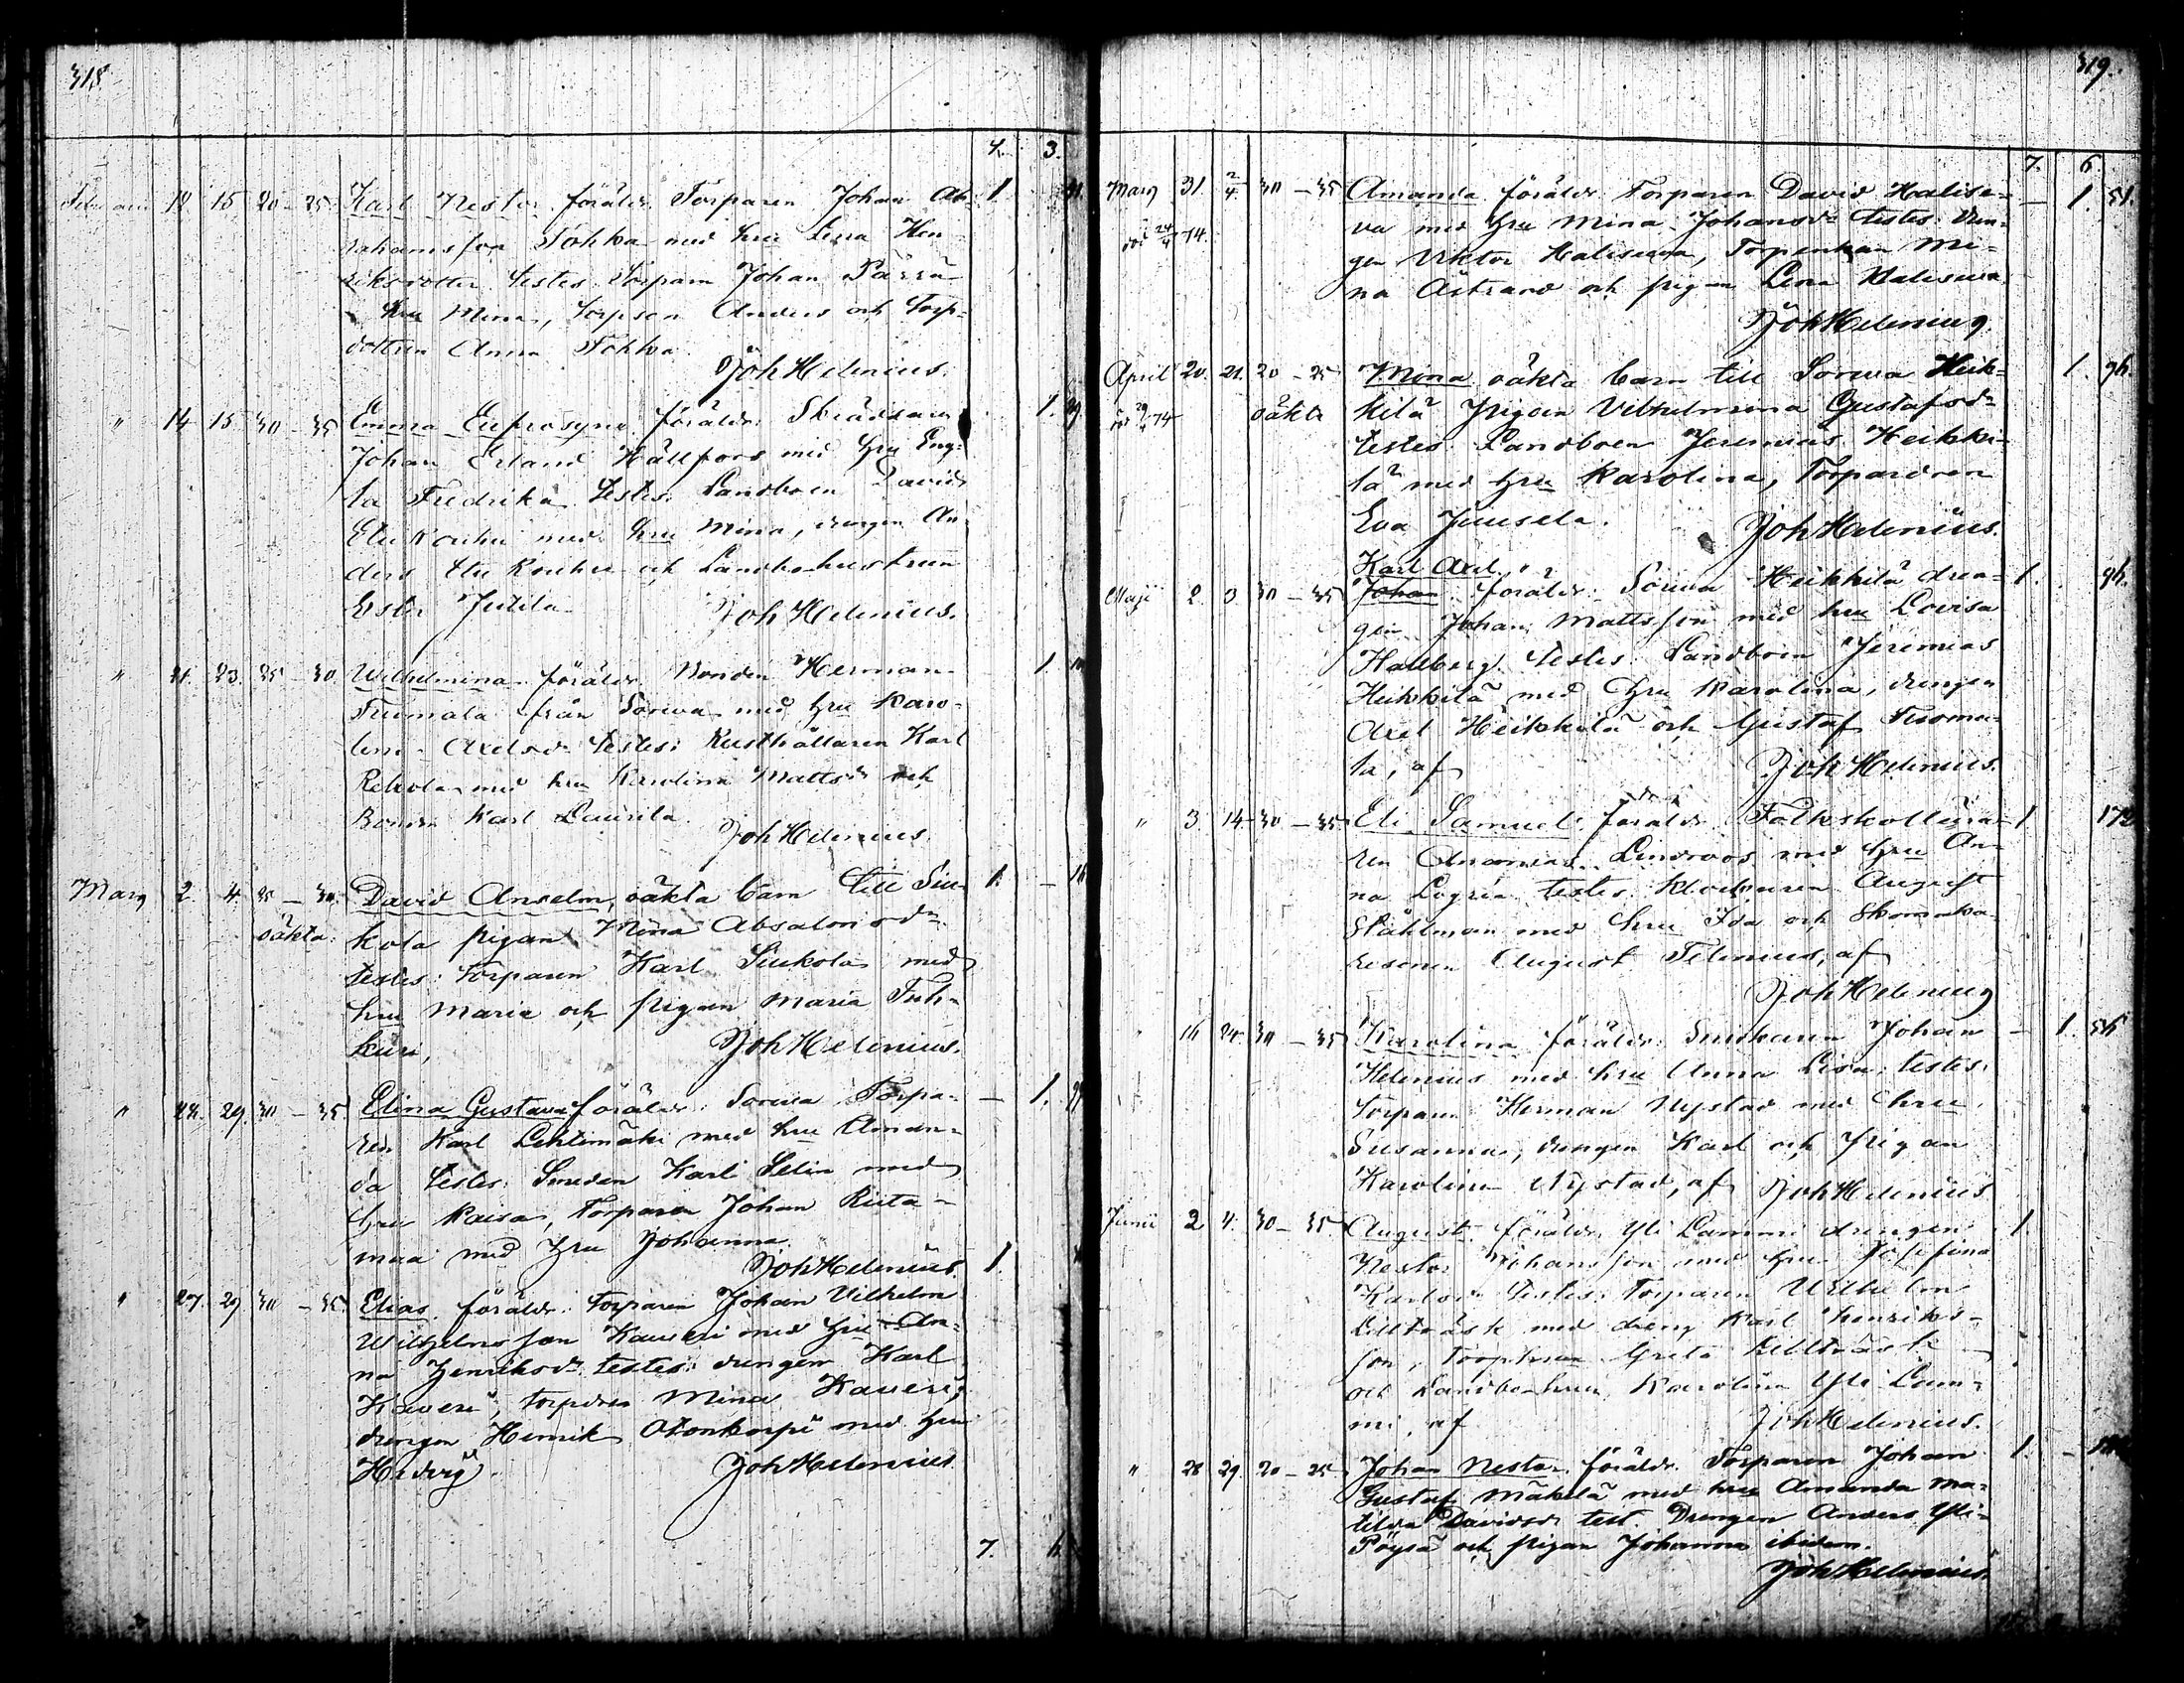 318.
4. 3.
Februarii 12 15 20 - 25 Karl Nestor, föräldr. Torparen Johan Ab- 1
rahamsson Tokka med hru Lena Hen-
riksdotter testes: Torparn Johan
hru Mina, torpson Anders och Torp-
dottren Anna Tokka.
Joh Helenius.
" 14 15 30 - 35 Emma Eufrosyne föräldr. Skräddaren 1.
Johan Erland Hällfors med hru Eng-
la Fredrika testes: Landboen David
Ete Kouhi med hru Mina, drengen An-
ders Ete Kouhi och Landbo hustrun
Ester Jutila
Joh Helenius.
" 21. 23. 25 - 30 Wilhelmina föräldr. Bonden Herman 1.
Tuomala från Sorwa med hru Karo-
lina Axelsdr testes: Rusthållaren Karl
Rekola med hru Karolina Mattsdr och
Bonden Karl Laurila.
Joh Helenius.
Marz 2. 4. 25 - 30. David Anselm, oäkta barn till Siu- 1. -
oäkta. kola pigan Mina Absalonsdr
testes: torparen Karl Siukola med
hru Maria och pigan Maria
Joh Helenius.
" 28. 29. 30 - 35 Elina Gustava föräldr: Sorwa Torpa- - 1.
ren Karl Lehtimäki med hru Aman-
da testes: Smeden Karl Selin med
hru Kaisa, Torparen Johan Riita-
maa med hru Johanna
Joh Helenius. 1.
" 27. 29 30 - 35 Elias föräldr: torparen Johan Vilhelm
Wilhelmsson Kaweri med hru An-
na Henriksdr testes: drengen Karl
Kaweri, torpdren Mina Kaweri,
drengen Henrik Otonkorpi med hru
Hedvig.
Joh Helenius
7.
319.
7. 6.
Marz 31. 2/4 30 - 35 Amanda föräldr Torparen David Halise- - 1. 51.
död 24/4 74. va med hru Mina Johansdr testes: dren-
gen Viktor Halisewa, Torpenkan Mi-
na Åstrand och pigan Lena Halisewa
Joh Helenius.
April 20. 21. 20 - 25 Mina oäkta barn till Sorwa Heik- 1. 96.
död 29/4 74 oäkta kilä pigan Vilhelmina Gustafsdr
testes Landboen Jeremias Heikki-
lä med hru Karolina, Torpardren
Eva Juusela.
Joh Helenius.
Karl Axel
Maji 2. 3 30 - 35 Johan föräldr: Sorwa Heikkilä dren- 1. 96.
gen Johan Mattsson med hru Lovisa
Hallberg. testes: Landboen Jeremias
Heikkilä med hru Karolina, drengen
Axel Heikkilä och Gustaf Tuoma-
la, af
Joh Helenius.
" 3. 14. 30 - 35 Eli Samuel, föräldr. Folkskollära- 1 172
ren Ananias Lindroos med hru An-
na testes: Klockaren August
Ståhlman med hru Ida och Skomaka-
resonen August Telenius, af
Joh Helenius
" 16 24. 30 - 35 Karolina föräldr: Smidaren Johan - 1. 56
Helenius med hru Anna Lisa. testes:
torparn Herman Nystad med hru
Susanna, drengen Karl och pigan
Karolina Nystad, af Joh Helenius
Junii 2 4. 30 - 35 August föräldr. Yli Lammi drengen 1.
Nestor Johansson med hru Josefina
Karlsdr testes: Torparen Wilhelm
Lillträsk med dreng Karl Henriks-
son, torphrun Greta Lillträsk
och Landbo-hrun Karolina Yli Lam-
mi, af
Joh Helenius.
" 28 29. 20 - 25 Johan Nestor, föräldr. Torparen Johan 1. -
Gustaf Mäkelä med hru Amanda Ma-
tilda Davidsdr test. Drengen Anders Yli-
Pöysä och pigan Johanna ibidem.
Joh Helenius.